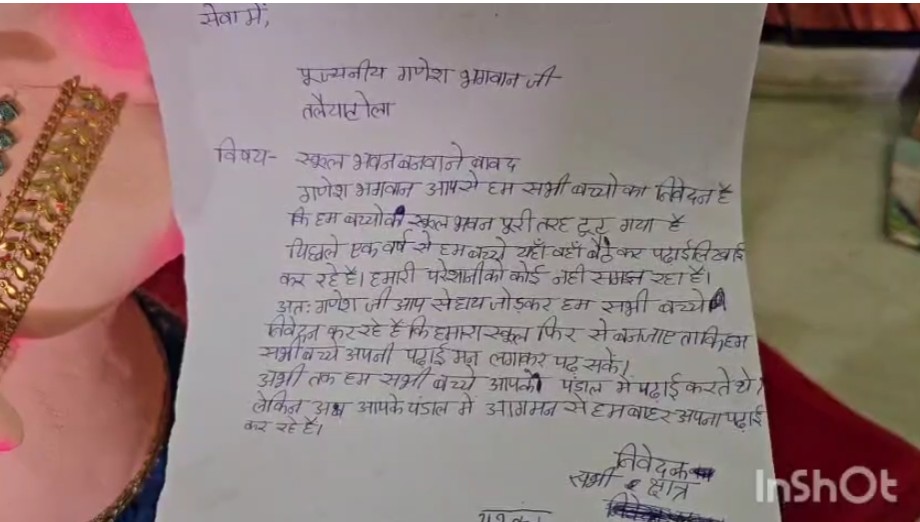 सेवा में,
पूज्यनीय गणेश भगवान जी
तलैयाटोला
विषय- स्कूल भवन बनवाने बावद
गणेश भगवान आपसे हम सभी बच्चो का निवेदन है
कि हम बच्चो के स्कूल भवन पुरी तरह टूट गया है
पिछले एक वर्ष से हम बच्चे यहाँ वहाँ बैठ कर पढ़ाई लिखाई
कर रहे है। हमारी परेशानी को कोई नही समझ रहा है।
अतः गणेश जी आप से हाथ जोड़कर हम सभी बच्चे
निवेदन कर रहे है कि हमारा स्कूल फिर से बन जाए ताकि हम
सभी बच्चे अपनी पढ़ाई मन लगाकर पढ़ सकें।
अभी तक हम सभी बच्चे आपके पंडाल में पढ़ाई करते थे।
लेकिन अब आपके पंडाल मे आगमन से हम बाहर अपना पढ़ाई
कर रहे है।
निवेदक
सभी छात्र
InShOt